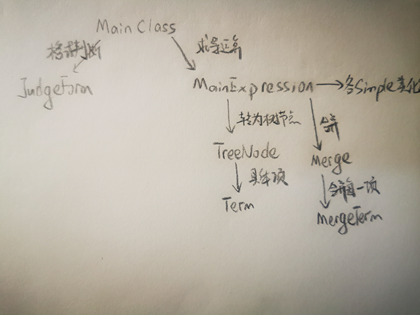 Main Class
格式判断
求导运算
JudgeForm
MainExpression
各Simple类化
转为树节点
合并
TreeNode
Merge
具体项
合并每一项
Term
MergeTerm